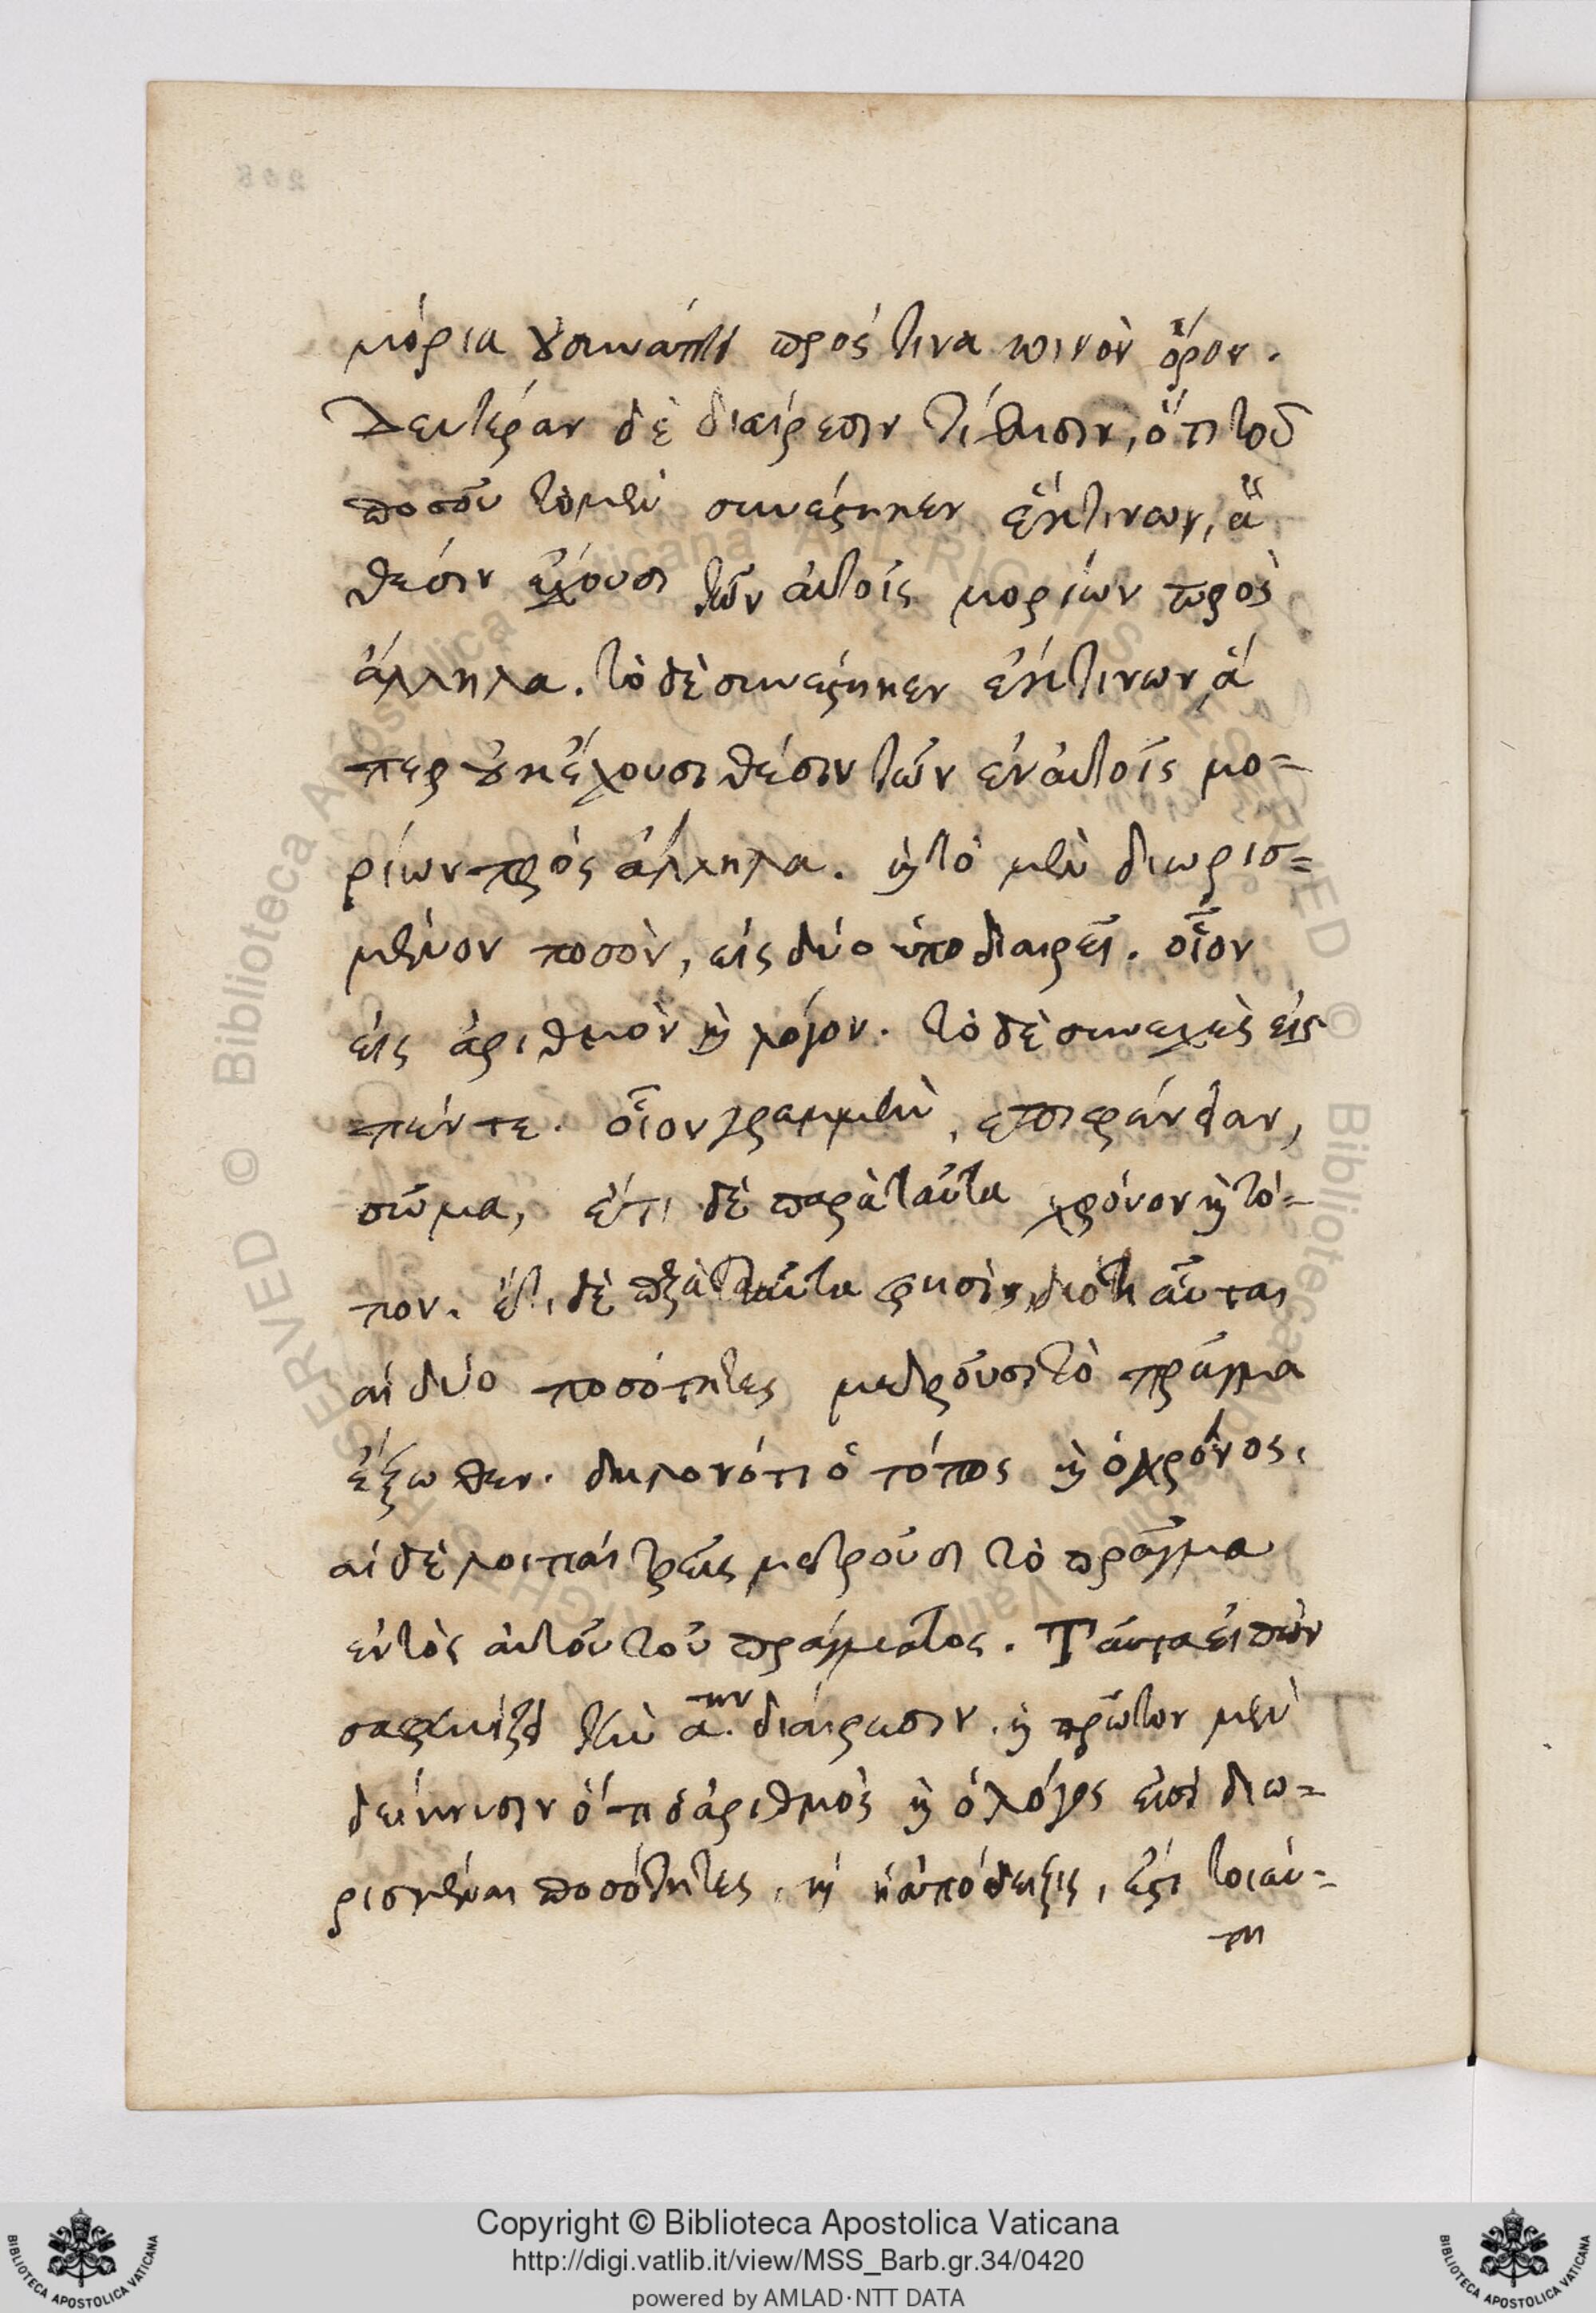 μόρια ȣ συνάπτει πρός τινα κοινὸν ὅρον.
Δευτέραν δὲ διαίρεσιν τίθησιν, ὅτι τοῦ
ποσοῦ τὸ μὲν συνέστηκεν ἔκτινων, ἃ
θέσιν ἔχουσι τῶν αὐτοῖς μορίων πρὸς
ἄλληλα. τὸ δὲ συνέστηκεν ἔκτινων, ἅ
περ ȣκ ἔχουσι θέσιν τῶν ἐν αὐτοῖς μο=
ρίων πρὸς ἄλληλα. ϗ τὸ μὲν διωρισ=
μένον ποσὸν, εἰς δύο ὑποδιαιρεῖ. οἷον
εἰς ἀριθμὸν ϗ λόγον. τὸ δὲ συνεχὲς εἰς
πέντε. οἷον γραμμὴν, ἐπιφάνειαν,
σῶμα, ἔτι δὲ παρὰ ταῦτα χρόνον ϗ τό=
πον. ἔτι δὲ παρὰ ταῦτα φησὶν, διότι αὗται
αἱ δύο ποσότητες μετροῦσι τὸ πρᾶγμα
ἔξωθεν. δηλονότι ὁ τόπος ϗ ὁ χρόνος.
αἱ δὲ λοιπαὶ τρεῖς μετροῦσι τὸ πρᾶγμα
ἐντὸς αὐτοῦ τοῦ πράγματος. Ταῦτα εἰπὼν
σαφηνίζει τὴν α.ην διαίρεσιν. ϗ πρῶτον μὲν
δείκνυσιν ὅτι ὁ ἀριθμὸς ϗ ὁ λόγος εἰσὶ διω=
ρισμέναι ποσότητες, ϗ ἡ ἀπόδειξις, ἐστὶ τοιαύ=
τη
Copyright © Biblioteca Apostolica Vaticana
http://digi.vatlib.it/view/MSS_Barb.gr.34/0420
powered by AMLAD·NTT DATA